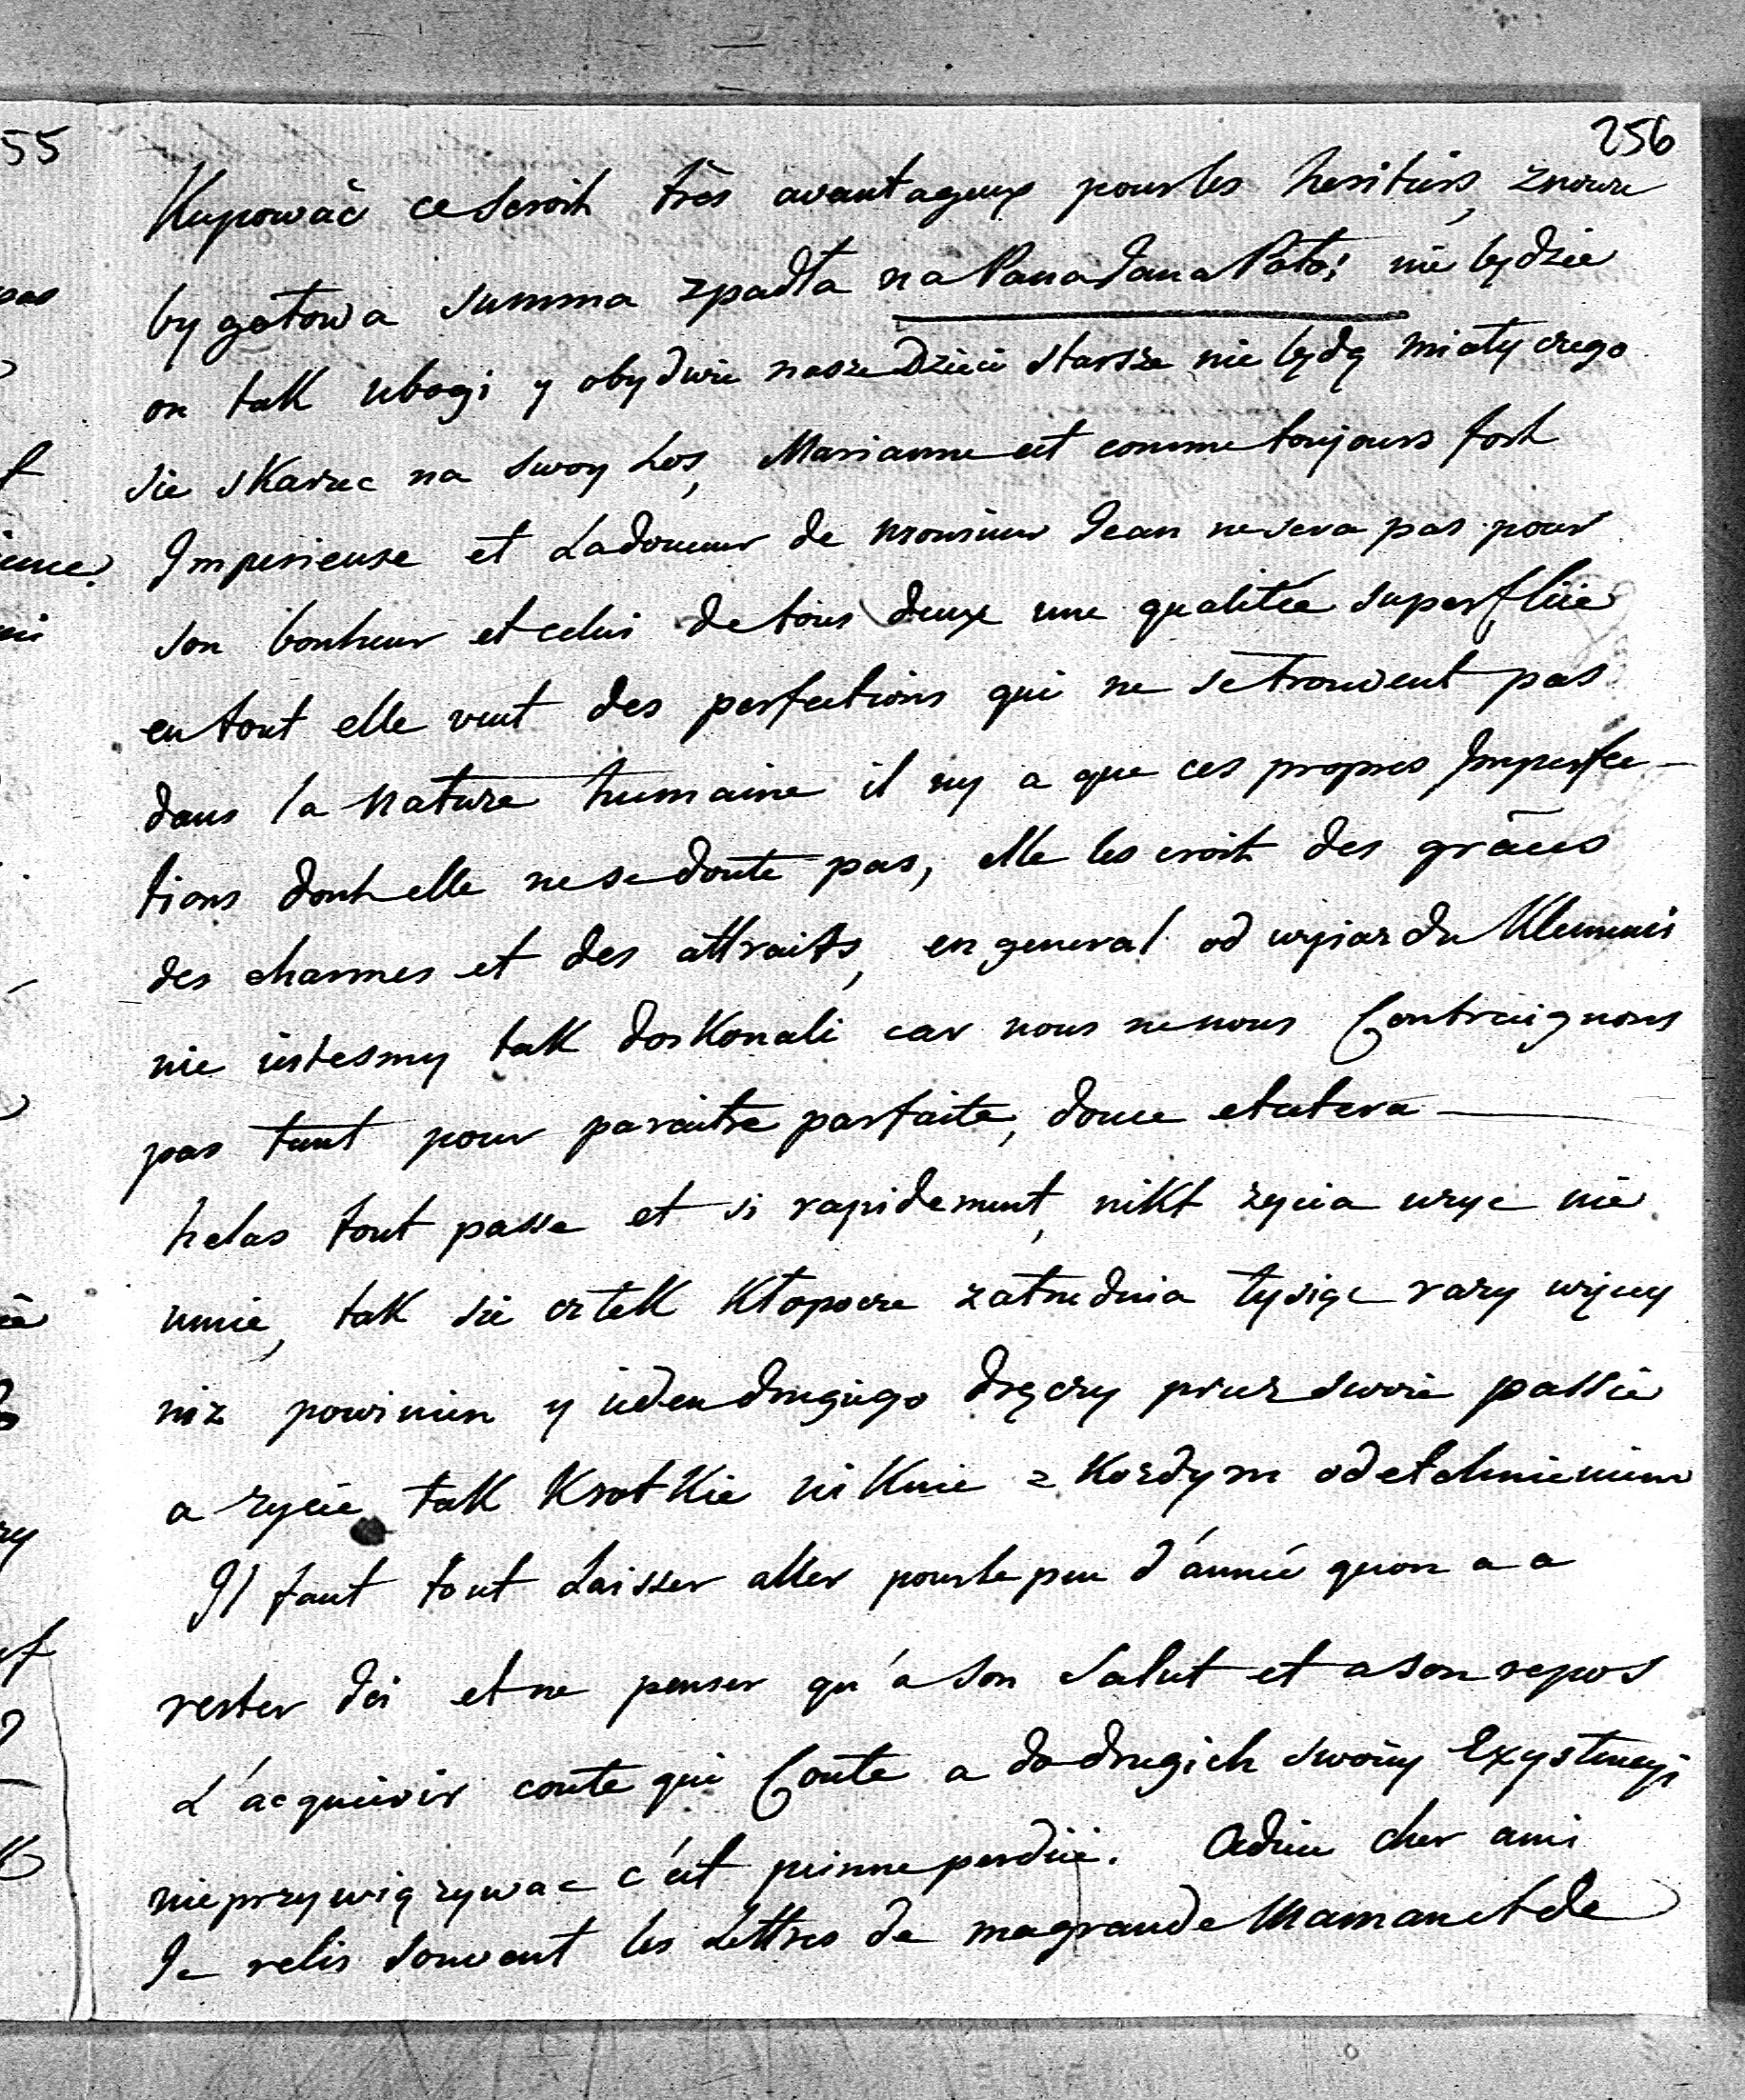 55
256
Kupowac ce seroit très avantageux pour les heritiers, znowu
by gotowa summa zpadła na Pana Jana Poto: nie będzie
on tak ubogi y obydwie nasze Dzieci starsze nie będą miały czego
sie skarzec na swoy Los, Marianne est comme toujours fort
Imperieuse et La douceur de monsieur Jean ne sera pas pour
son bonheur et celui de tous deux une qualitée superflüe
en tout elle veut des perfections qui ne se trouvent pas
dans la nature humaine il ny a que ces propres Imperfec-
tions dont elle ne se doute pas, elle les croit des grâces
des charmes et des attraits, en general od wyiazdu Klemunci
nie iestesmy tak doskonali car nous ne nous Contraignons
pas tant pour paraitre parfaite, douce et cetera —
helas tout passe et si rapidement, nikt zycia uzyc nie
umie, tak sie cztek kłopocze zatrudnia tysiąc razy więcey
niz powinien y ieden drugiego dręczy przez swoie passie
a zycie tak krotkie niknie z kozdym odetchnieniem
Il faut tout Laisser aller pour le peu d'année quon a a
rester ici et ne penser qu'a son salut et a son repos
L'acquierir coute qui Coute a do drugich swoiey Exystencyi
nie przywiązywac c'est peinne perdüe. Adieu cher ami
Je relis souvent les Lettres de ma grande Maman et de